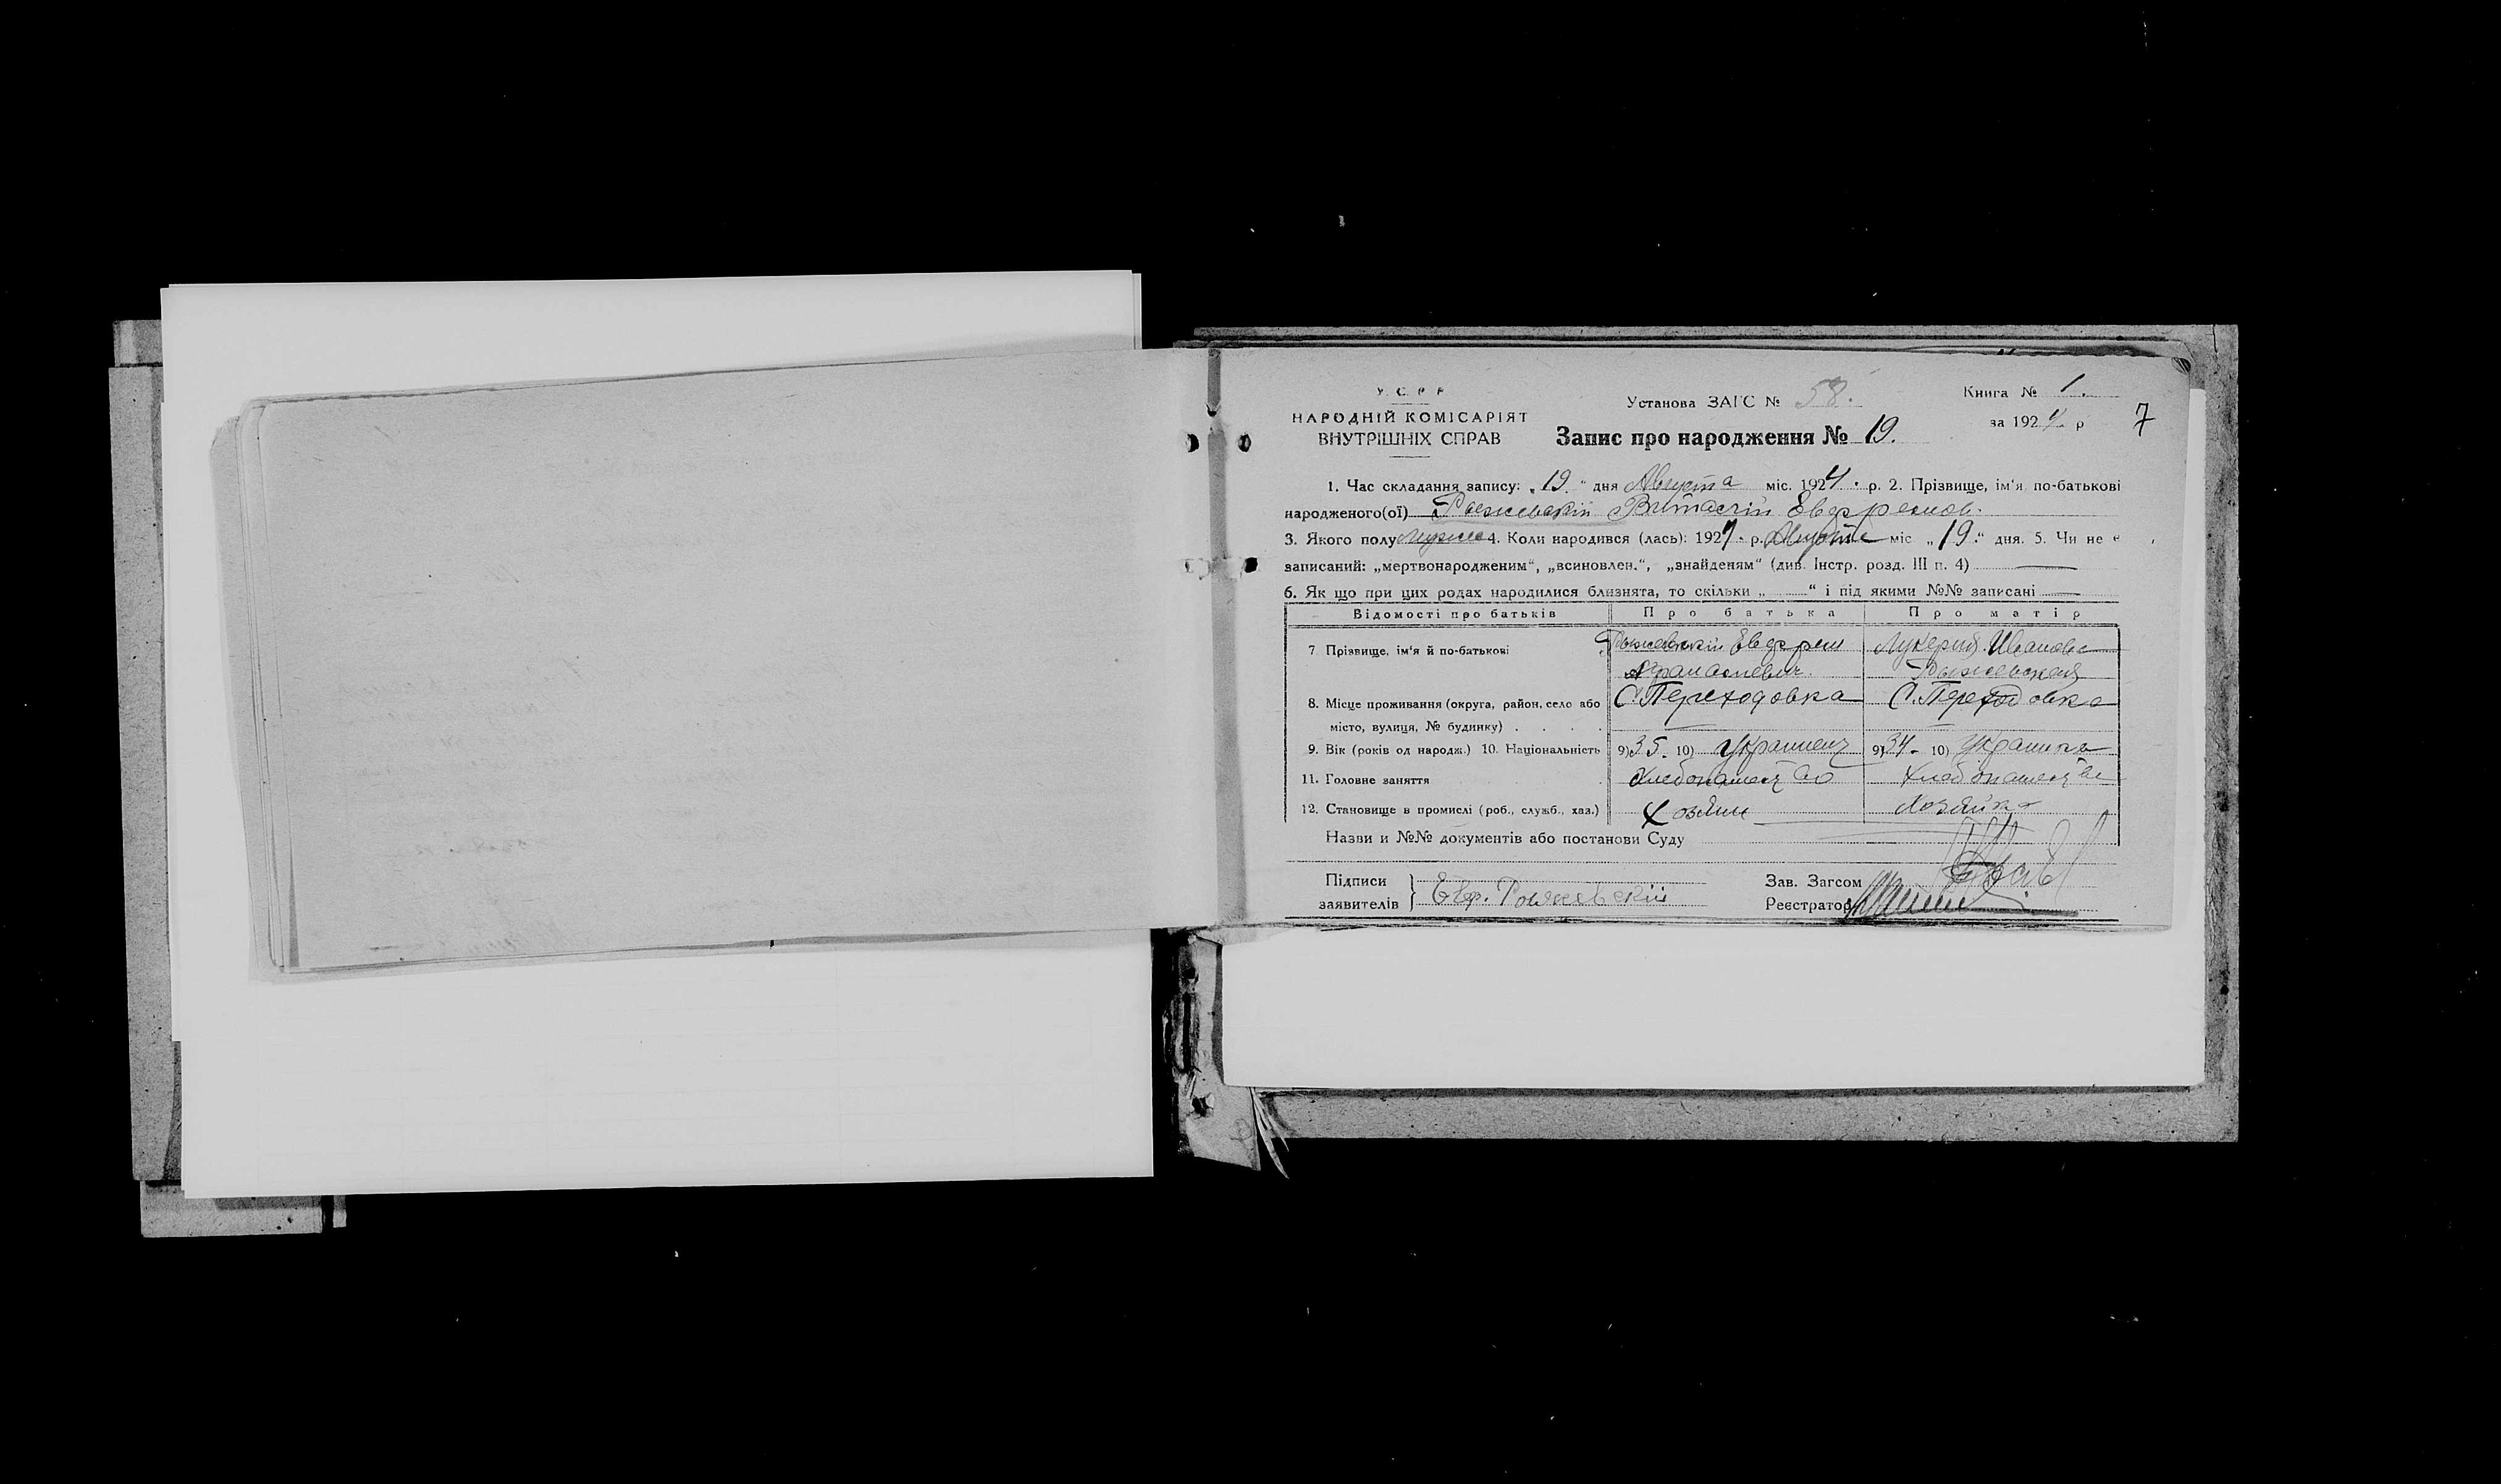 У. С. Р. Р.
НАРОДНІЙ КОМІСАРІЯТ
ВНУТРІШНІХ СПРАВ
Установа ЗАГС № 58.
Книга № 1.
за 1924 р
7
Запис про народження № 19.
1. Час складання запису: „19.“ дня Августа міс. 1924. р. 2. Прізвище, ім‘я по-батькові
народженого(ої) Рыжевскій Виталій
3. Якого полу 4. Коли народився (лась): 192 . р. Августа міс „19.“ дня. 5. Чи не є
записаний: „мертвонародженим“, „всиновлен.“, „знайденям“ (див. Інстр. розд. III п. 4)
6. Як що при цих родах народилися близнята, то скільки „ “ і під якими №№ записані
Відомості про батьків Про батька Про матір
7 Прізвище, ім‘я й по-батькові Рыжевскій Лукерия Иванова
Рыжевская
8. Місце проживання (округа, район, село або С. Переходовка С. Переходовка
місто, вулиця, № будинку) . . . .
9. Вік (років од народж.) 10. Національність 9) 35. 10) Украинец 9) 34- 10) Украинка
11. Головне заняття Хлебопашество Хлебопашество
12. Становище в промислі (роб., служб., хаз.) Хозяин Хозяйка
Назви и №№ документів або постанови Суду
Підписи
заявителів } Евф. Рыжевскій
Зав. Загсом
Реєстратор